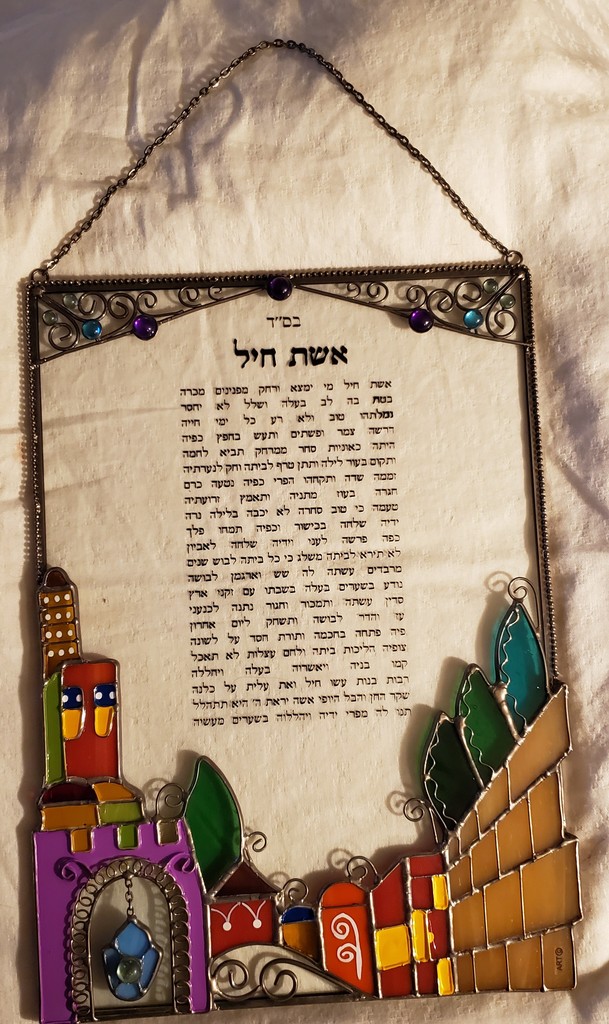 בס״ד
אשת חיל
אשת חיל מי ימצא ורחק מפנינים מכרה
בטח בה לב בעלה ושלל לא יחסר
גמלתהו טוב ולא רע כל ימי חייה
דרשה צמר ופשתים ותעש בחפץ כפיה
היתה כאוניות סחר ממרחק תביא לחמה
ותקום בעוד לילה ותתן טרף לביתה וחק לנערתיה
זממה שדה ותקחהו מפרי כפיה נטעה כרם
חגרה בעוז מתניה ותאמץ זרועתיה
טעמה כי טוב סחרה לא יכבה בלילה נרה
ידיה שלחה בכישור וכפיה תמחו פלך
כפה פרשה לעני וידיה שלחה לאביון
לא תירא לביתה משלג כי כל ביתה לבוש שנים
מרבדים עשתה לה שש וארגמן לבושה
נודע בשערים בעלה בשבתו עם זקני ארץ
סדין עשתה ותמכור וחגור נתנה לכנעני
עז והדר לבושה ותשחק ליום אחרון
פיה פתחה בחכמה ותורת חסד על לשונה
צופיה הליכות ביתה ולחם עצלות לא תאכל
קמו בניה ויאשרוה בעלה ויהללה
רבות בנות עשו חיל ואת עלית על כלנה
שקר החן והבל היופי אשה יראת ה׳ היא תתהלל
תנו לה מפרי ידיה ויהללוה בשערים מעשיה
ART©